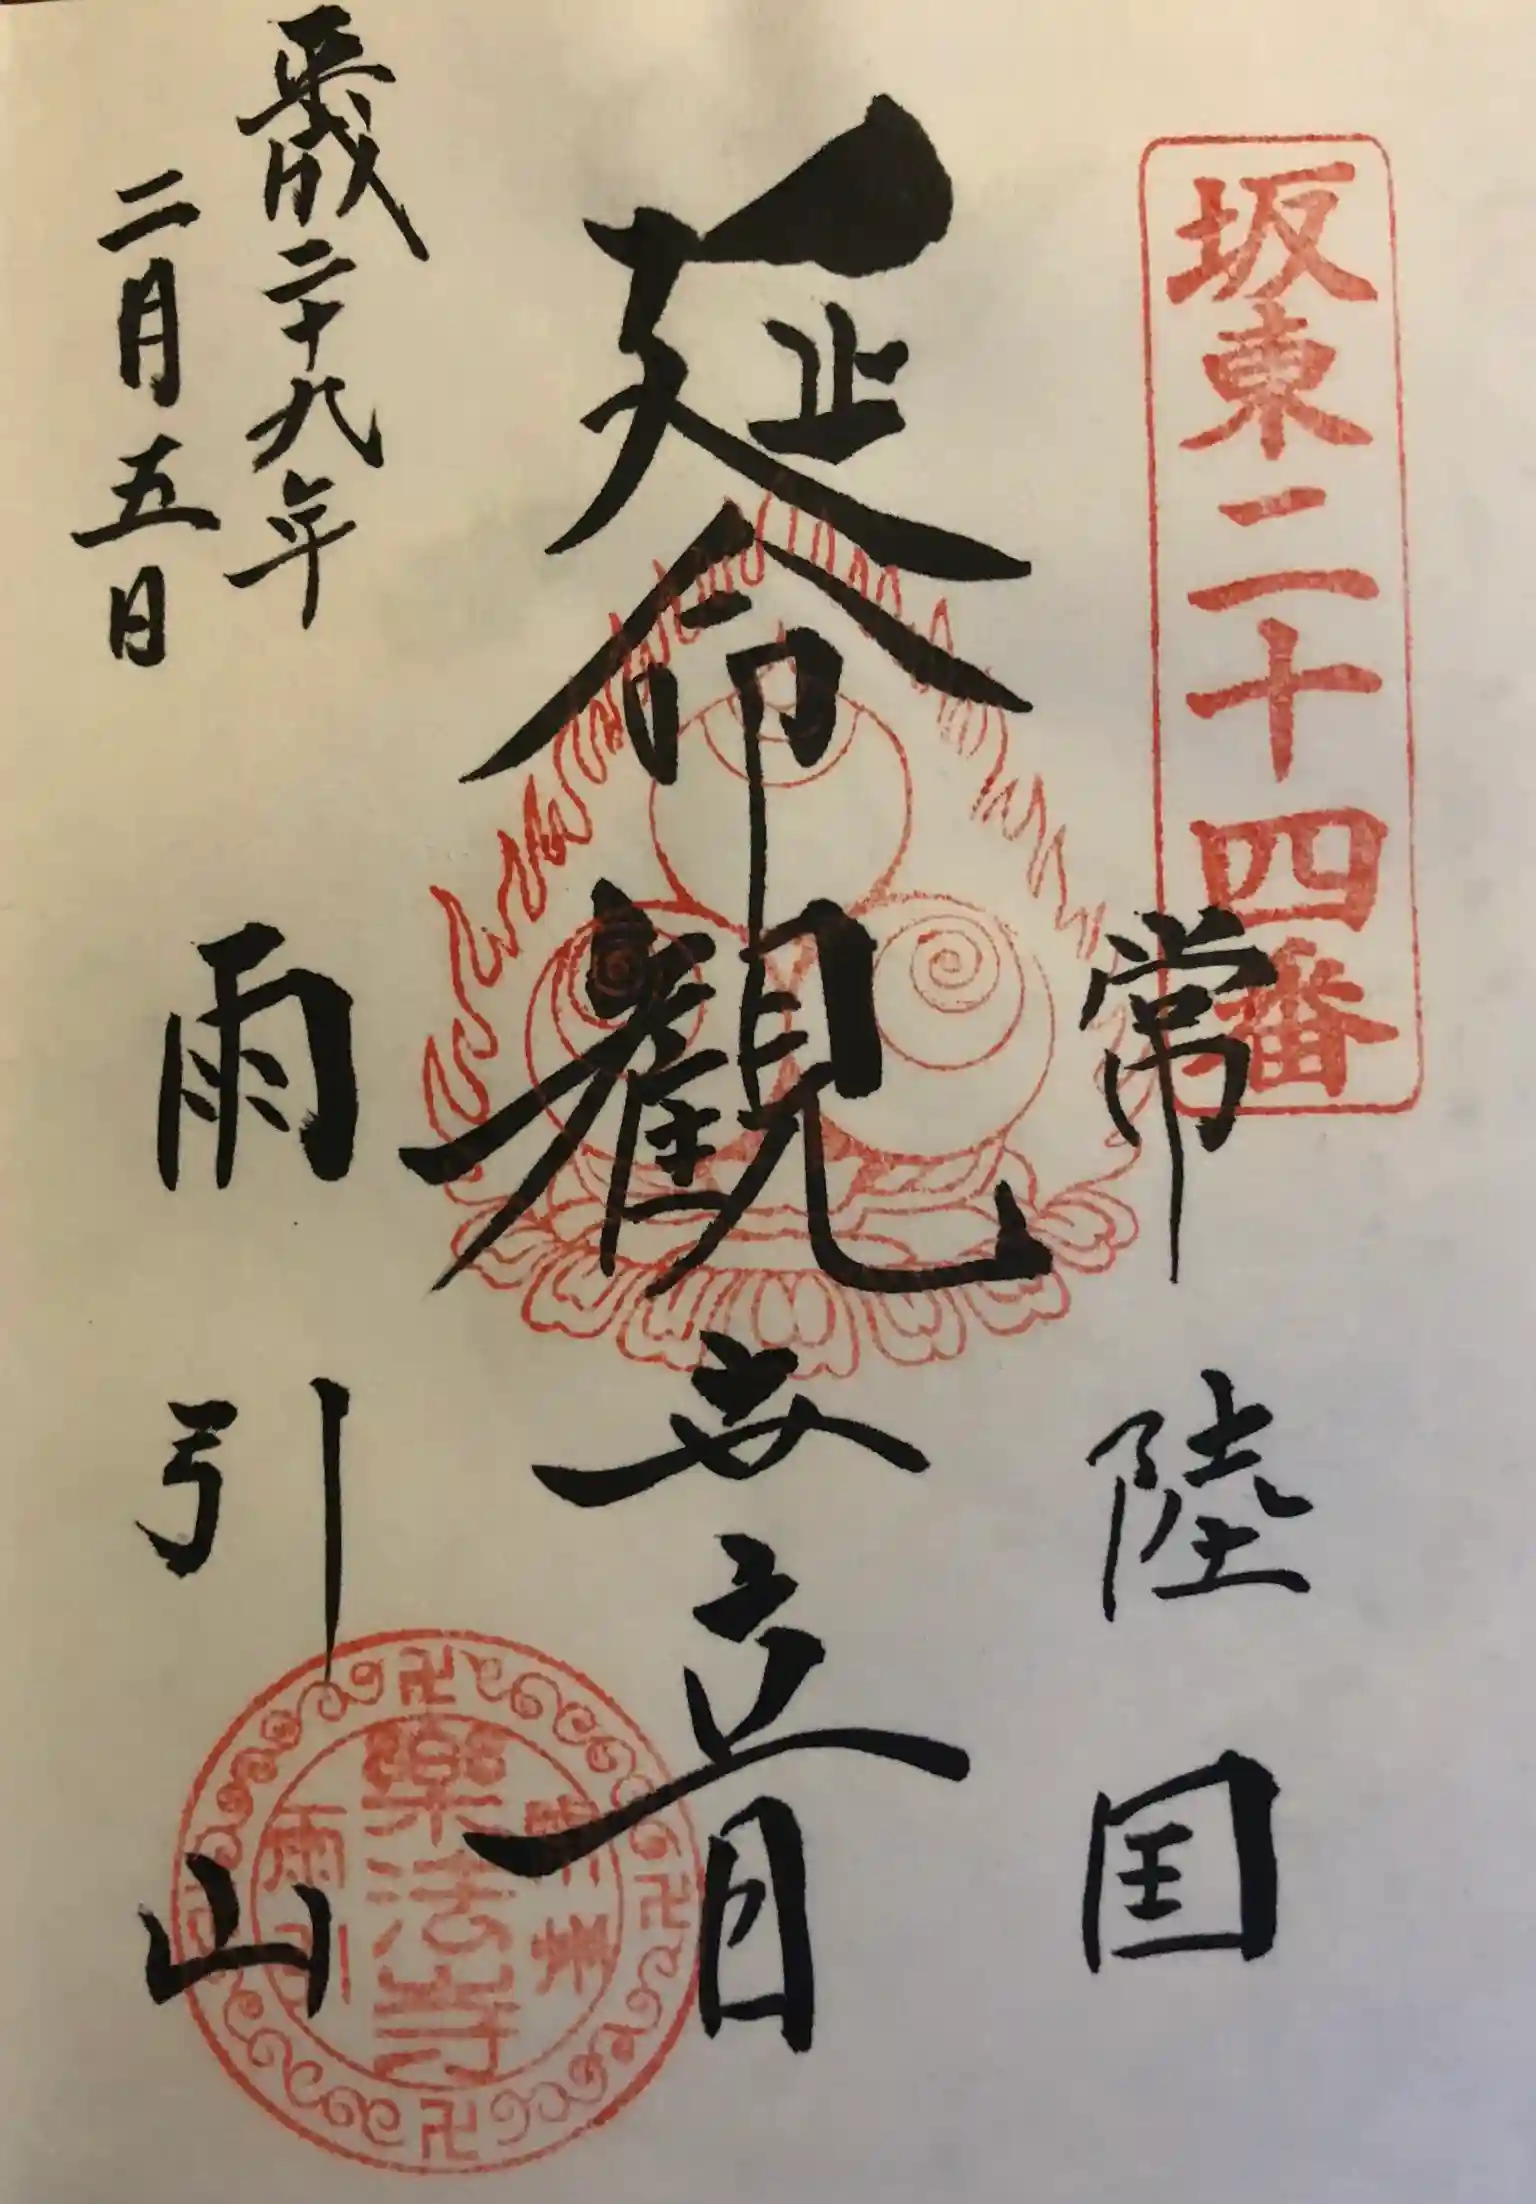 坂東二十四番
常陸国
延命観世音
平成二十九年
二月五日
雨引山
樂法寺
雨引